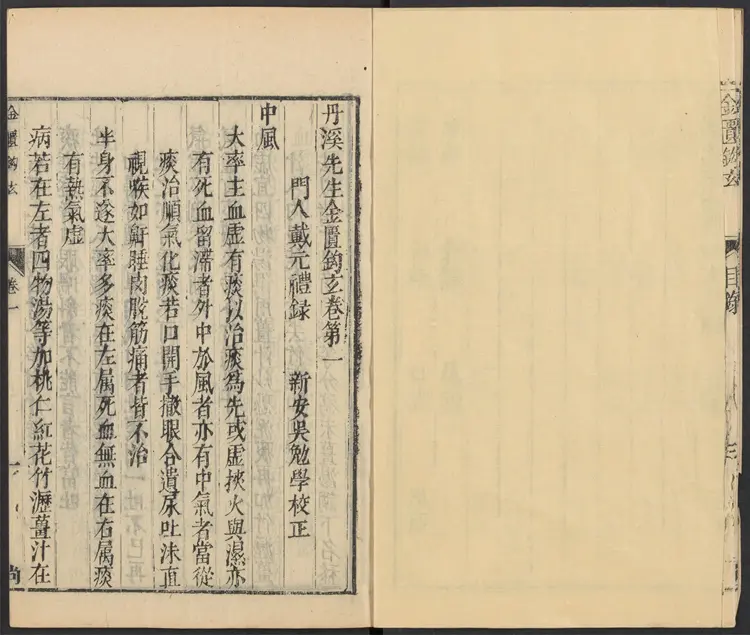 金匱鈎玄
目錄
丹溪先生金匱鈎玄卷第一
門人戴元禮録 新安吳勉學校正
中風
大率主血虛有痰以治痰為先或虛挾火與濕亦
有死血留滯者外中於風者亦有中氣者當從
痰治順氣化痰若口開手撒眼合遺尿吐沫直
視喉如鼾睡肉脫筋痛者皆不治
半身不遂大率多痰在左屬死血無血在右屬痰
有熱氣虛
病若在左者四物湯等加桃仁紅花竹瀝薑汁在
金匱鈎玄
卷一
一
尚